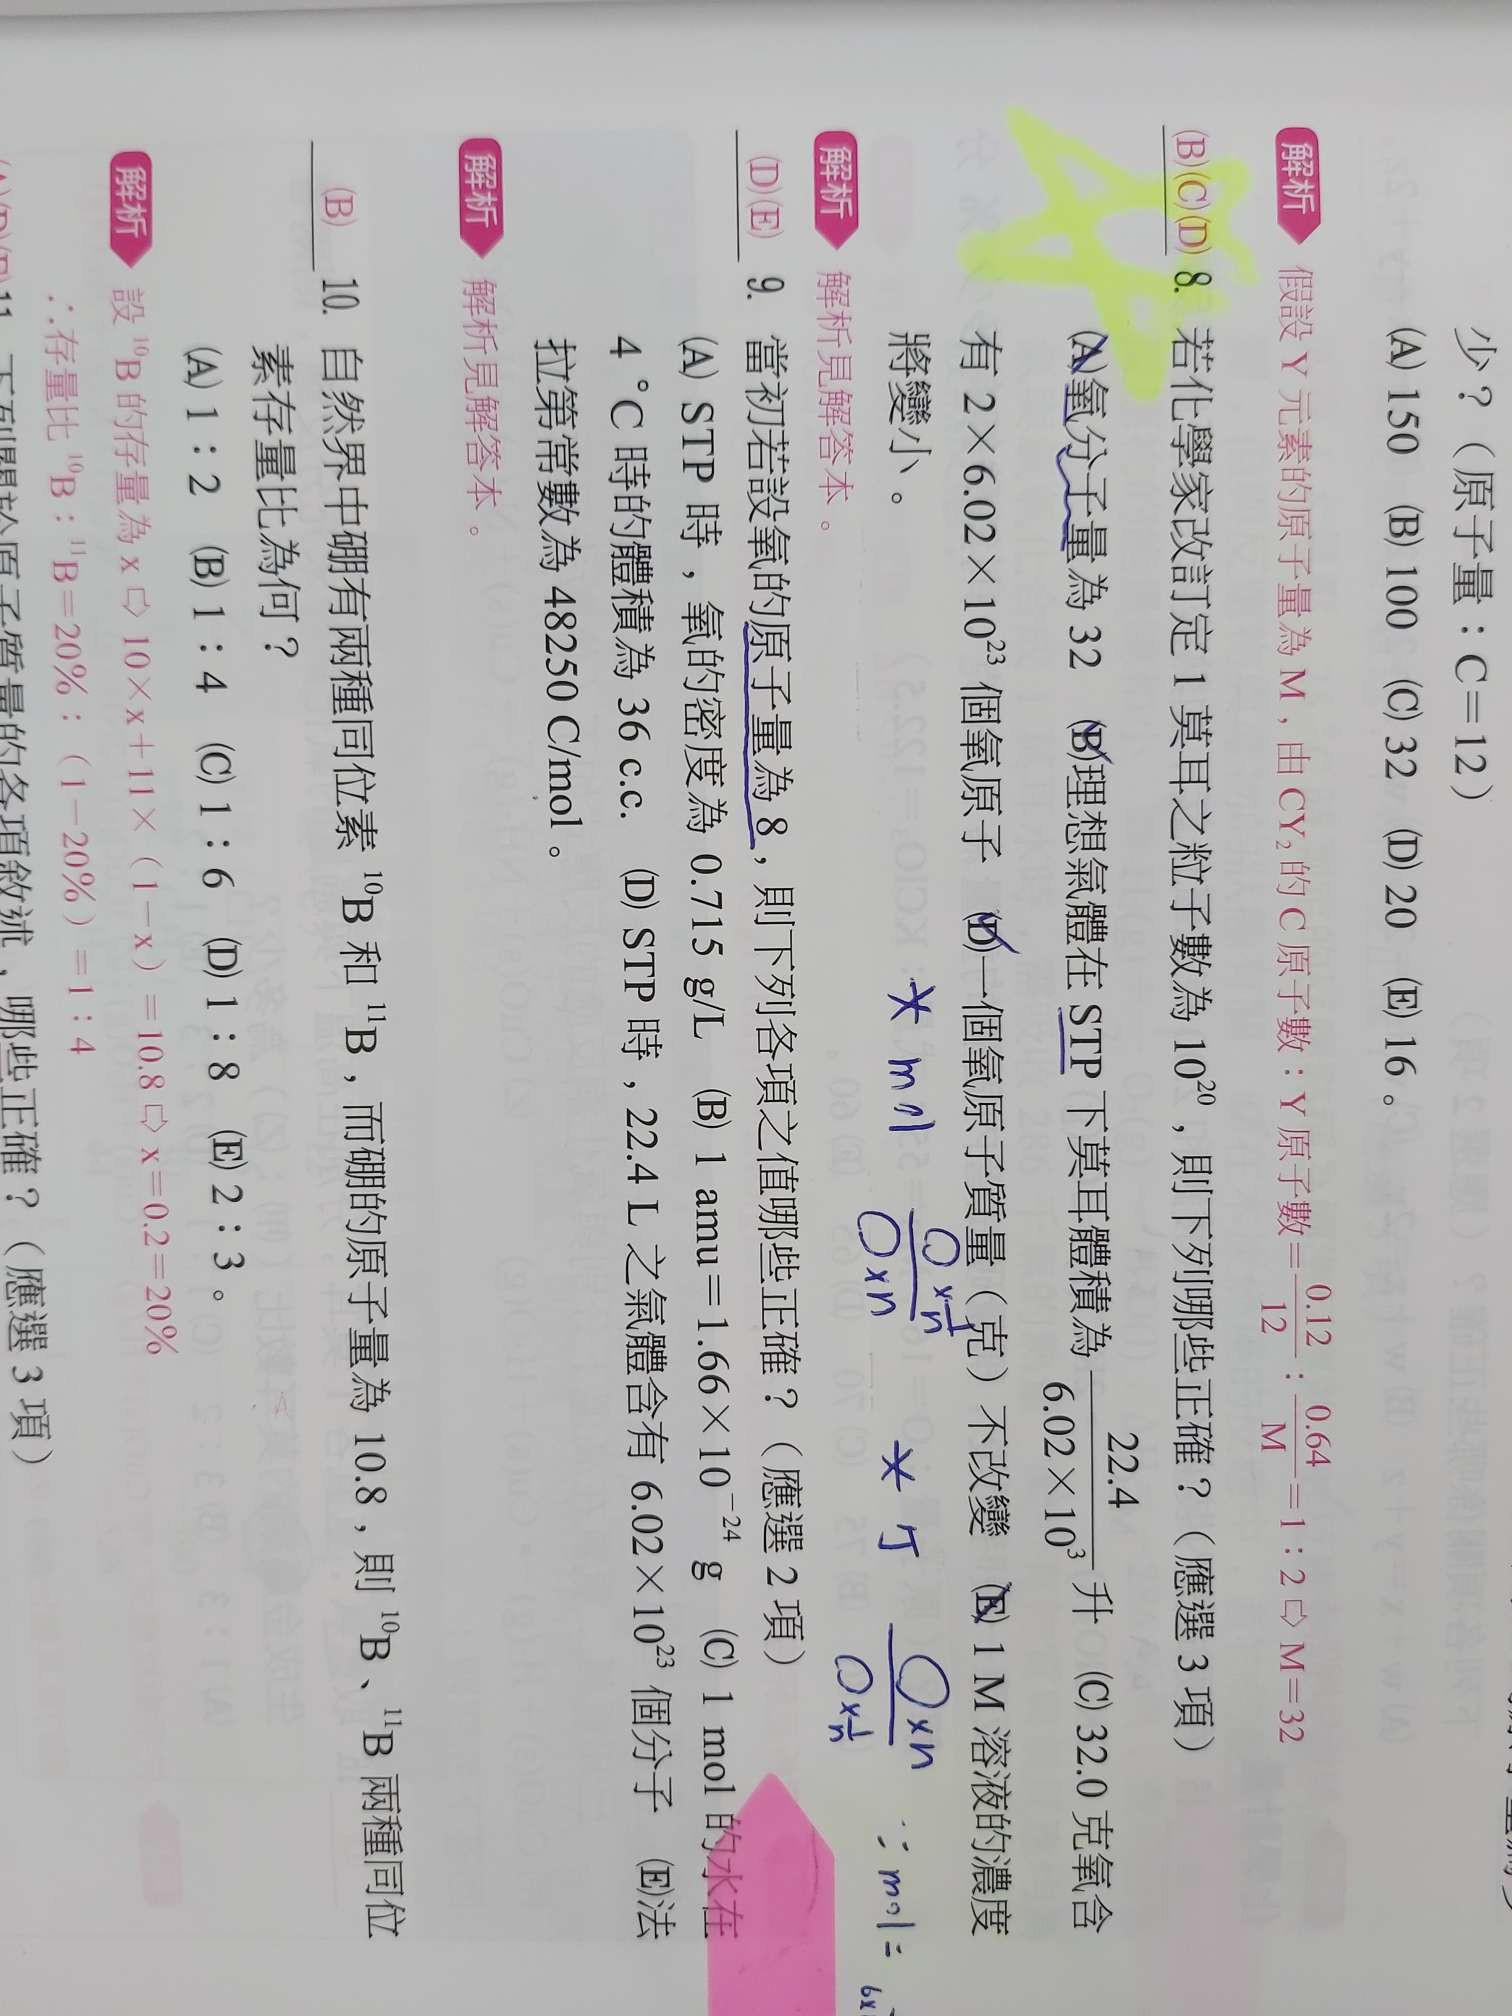 少？（原子量：C＝12）
(A) 150 (B) 100 (C) 32 (D) 20 (E) 16。
解析 假設 Y 元素的原子量為 M，由 CY₂ 的 C 原子數：Y 原子數＝0.12/12：0.64/M＝1：2⇨M＝32
(B)(C)(D) 8. 若化學家改訂定 1 莫耳之粒子數為 10²⁰，則下列哪些正確？（應選 3 項）
(A)氧分子量為 32 (B)理想氣體在 STP 下莫耳體積為 22.4/6.02×10³ 升 (C) 32.0 克氧含
有 2×6.02×10²³ 個氧原子 (D)一個氧原子質量（克）不改變 (E) 1 M 溶液的濃度
將變小。
* mol O×1/n / O×n * 個 O×n / O×1/n ∵ mol =
解析 解析見解答本。
(D)(E) 9. 當初若設氧的原子量為 8，則下列各項之值哪些正確？（應選 2 項）
(A) STP 時，氧的密度為 0.715 g/L (B) 1 amu＝1.66×10⁻²⁴ g (C) 1 mol 的水在
4 °C 時的體積為 36 c.c. (D) STP 時，22.4 L 之氣體含有 6.02×10²³ 個分子 (E)法
拉第常數為 48250 C/mol。
解析 解析見解答本。
(B) 10. 自然界中硼有兩種同位素 ¹⁰B 和 ¹¹B，而硼的原子量為 10.8，則 ¹⁰B、¹¹B 兩種同位
素存量比為何？
(A) 1：2 (B) 1：4 (C) 1：6 (D) 1：8 (E) 2：3。
解析 設 ¹⁰B 的存量為 x⇨10×x＋11×（1－x）＝10.8⇨x＝0.2＝20%
∴存量比 ¹⁰B：¹¹B＝20%：（1－20%）＝1：4
11. 下列關於原子質量的各項敘述，哪些正確？（應選 3 項）